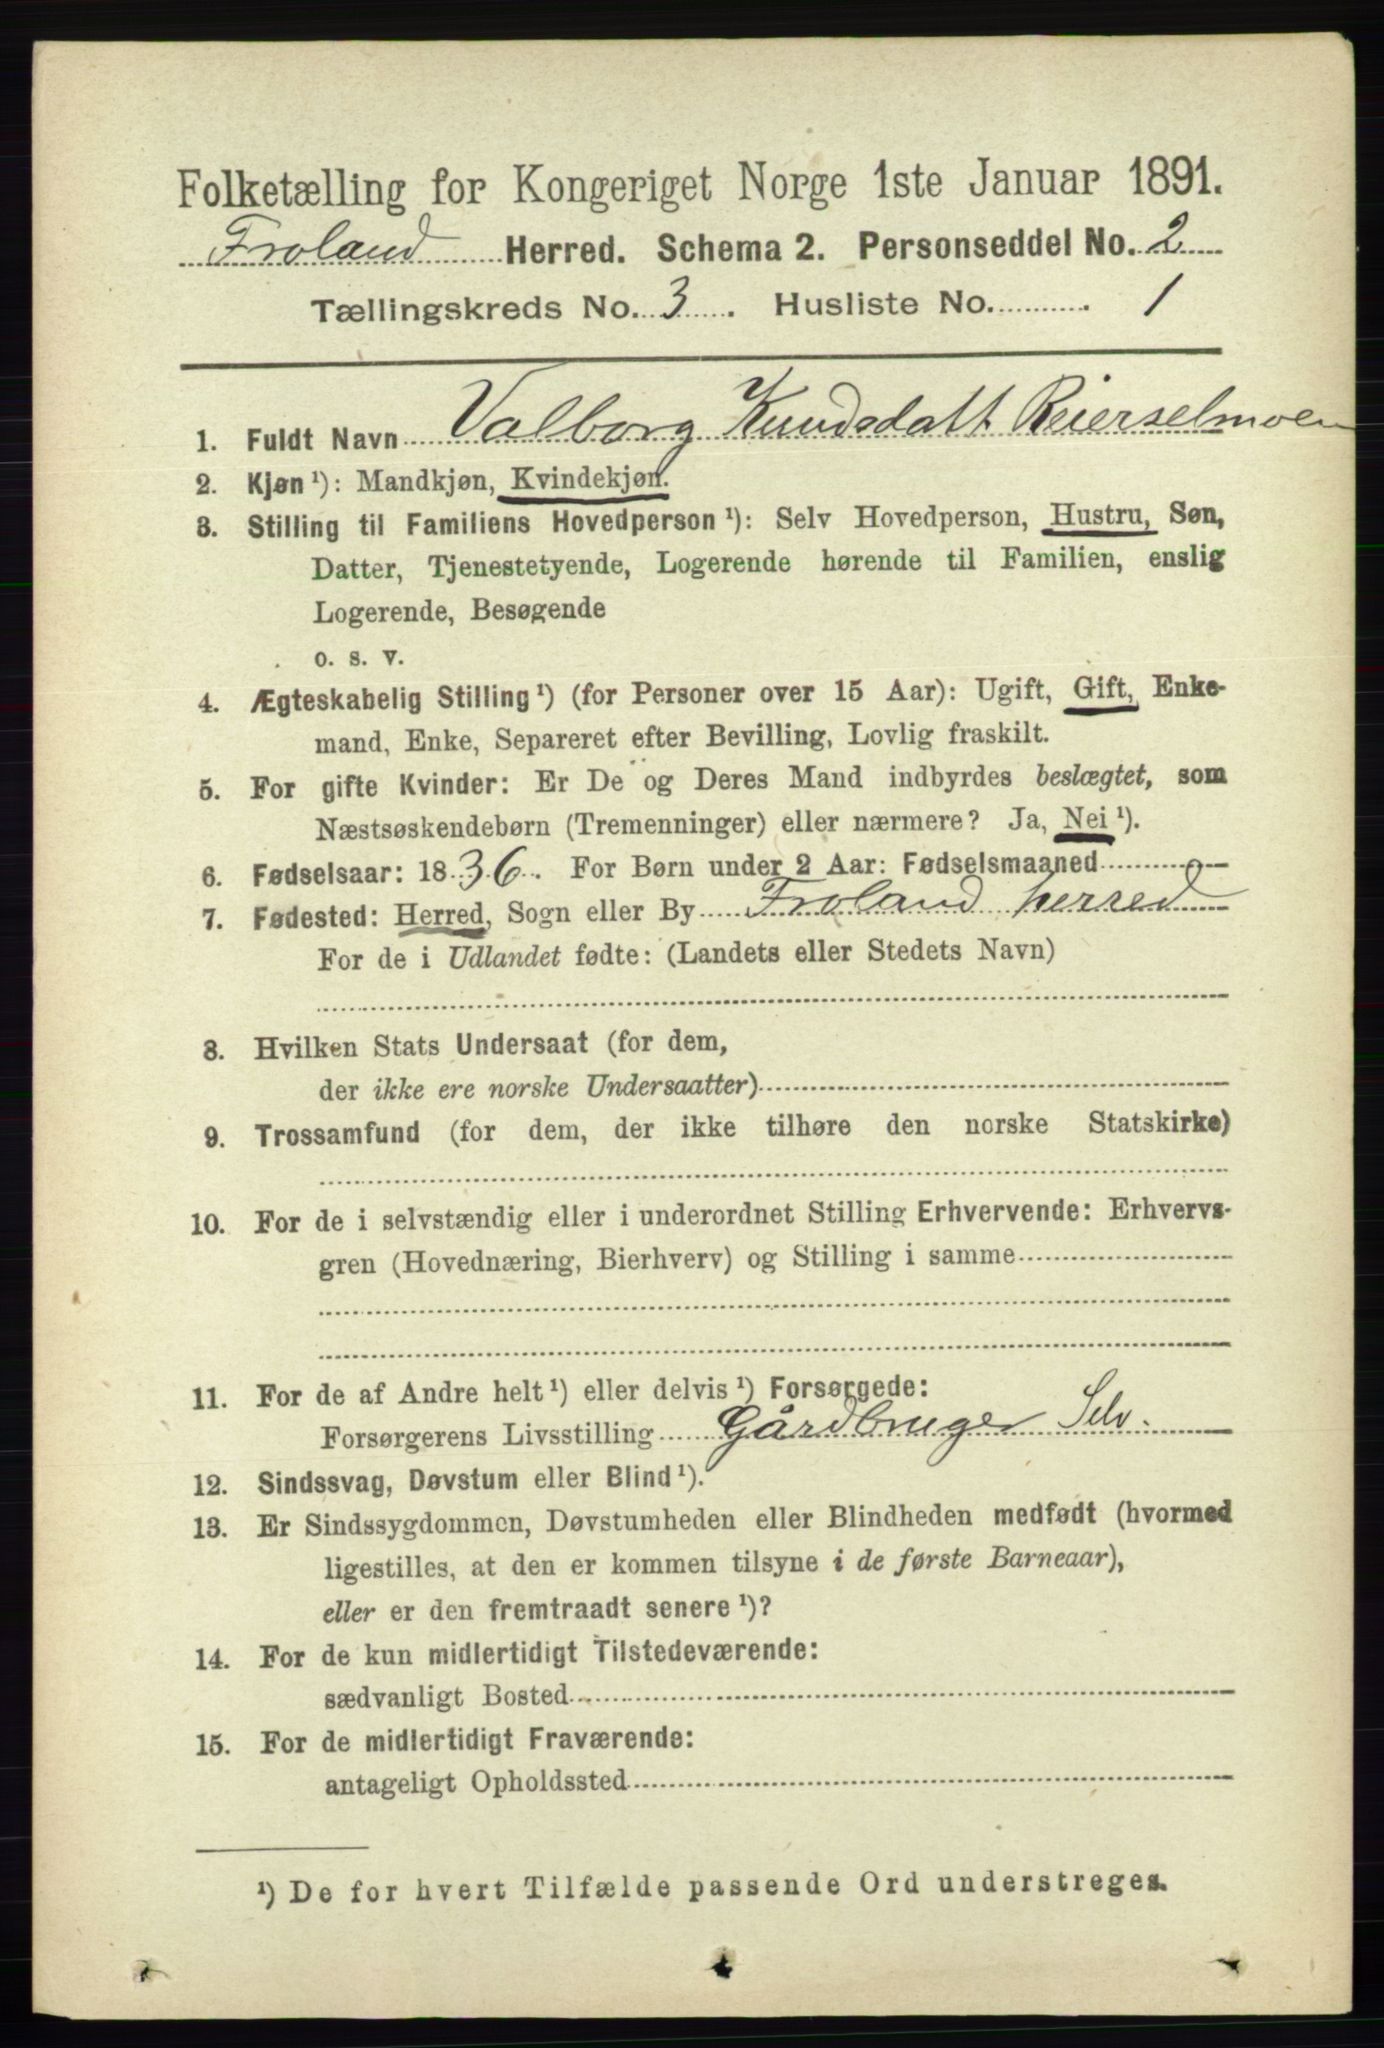 Folketælling for Kongeriget Norge 1ste Januar 1891.
Froland Herred. Schema 2. Personseddel No. 2
Tællingskreds No. 3. Husliste No. 1
1. Fuldt Navn Valborg Knudsdatt. Reierselmoen
2. Kjøn ¹): Mandkjøn, Kvindekjøn.
3. Stilling til Familiens Hovedperson ¹): Selv Hovedperson, Hustru, Søn,
Datter, Tjenestetyende, Logerende hørende til Familien, enslig
Logerende, Besøgende
o. s. v.
4. Ægteskabelig Stilling ¹) (for Personer over 15 Aar): Ugift, Gift, Enke-
mand, Enke, Separeret efter Bevilling, Lovlig fraskilt.
5. For gifte Kvinder: Er De og Deres Mand indbyrdes beslægtet, som
Næstsøskendebørn (Tremenninger) eller nærmere? Ja, Nei ¹).
6. Fødselsaar: 1836. For Børn under 2 Aar: Fødselsmaaned
7. Fødested: Herred, Sogn eller By Froland herred
For de i Udlandet fødte: (Landets eller Stedets Navn)
8. Hvilken Stats Undersaat (for dem,
der ikke ere norske Undersaatter)
9. Trossamfund (for dem, der ikke tilhøre den norske Statskirke)
10. For de i selvstændig eller i underordnet Stilling Erhvervende: Erhvervs-
gren (Hovednæring, Bierhverv) og Stilling i samme
11. For de af Andre helt ¹) eller delvis ¹) Forsørgede:
Forsørgerens Livsstilling Gårdbruger Selv.
12. Sindssvag, Døvstum eller Blind ¹).
13. Er Sindssygdommen, Døvstumheden eller Blindheden medfødt (hvormed
ligestilles, at den er kommen tilsyne i de første Barneaar),
eller er den fremtraadt senere ¹)?
14. For de kun midlertidigt Tilstedeværende:
sædvanligt Bosted
15. For de midlertidigt Fraværende:
antageligt Opholdssted
¹) De for hvert Tilfælde passende Ord understreges.